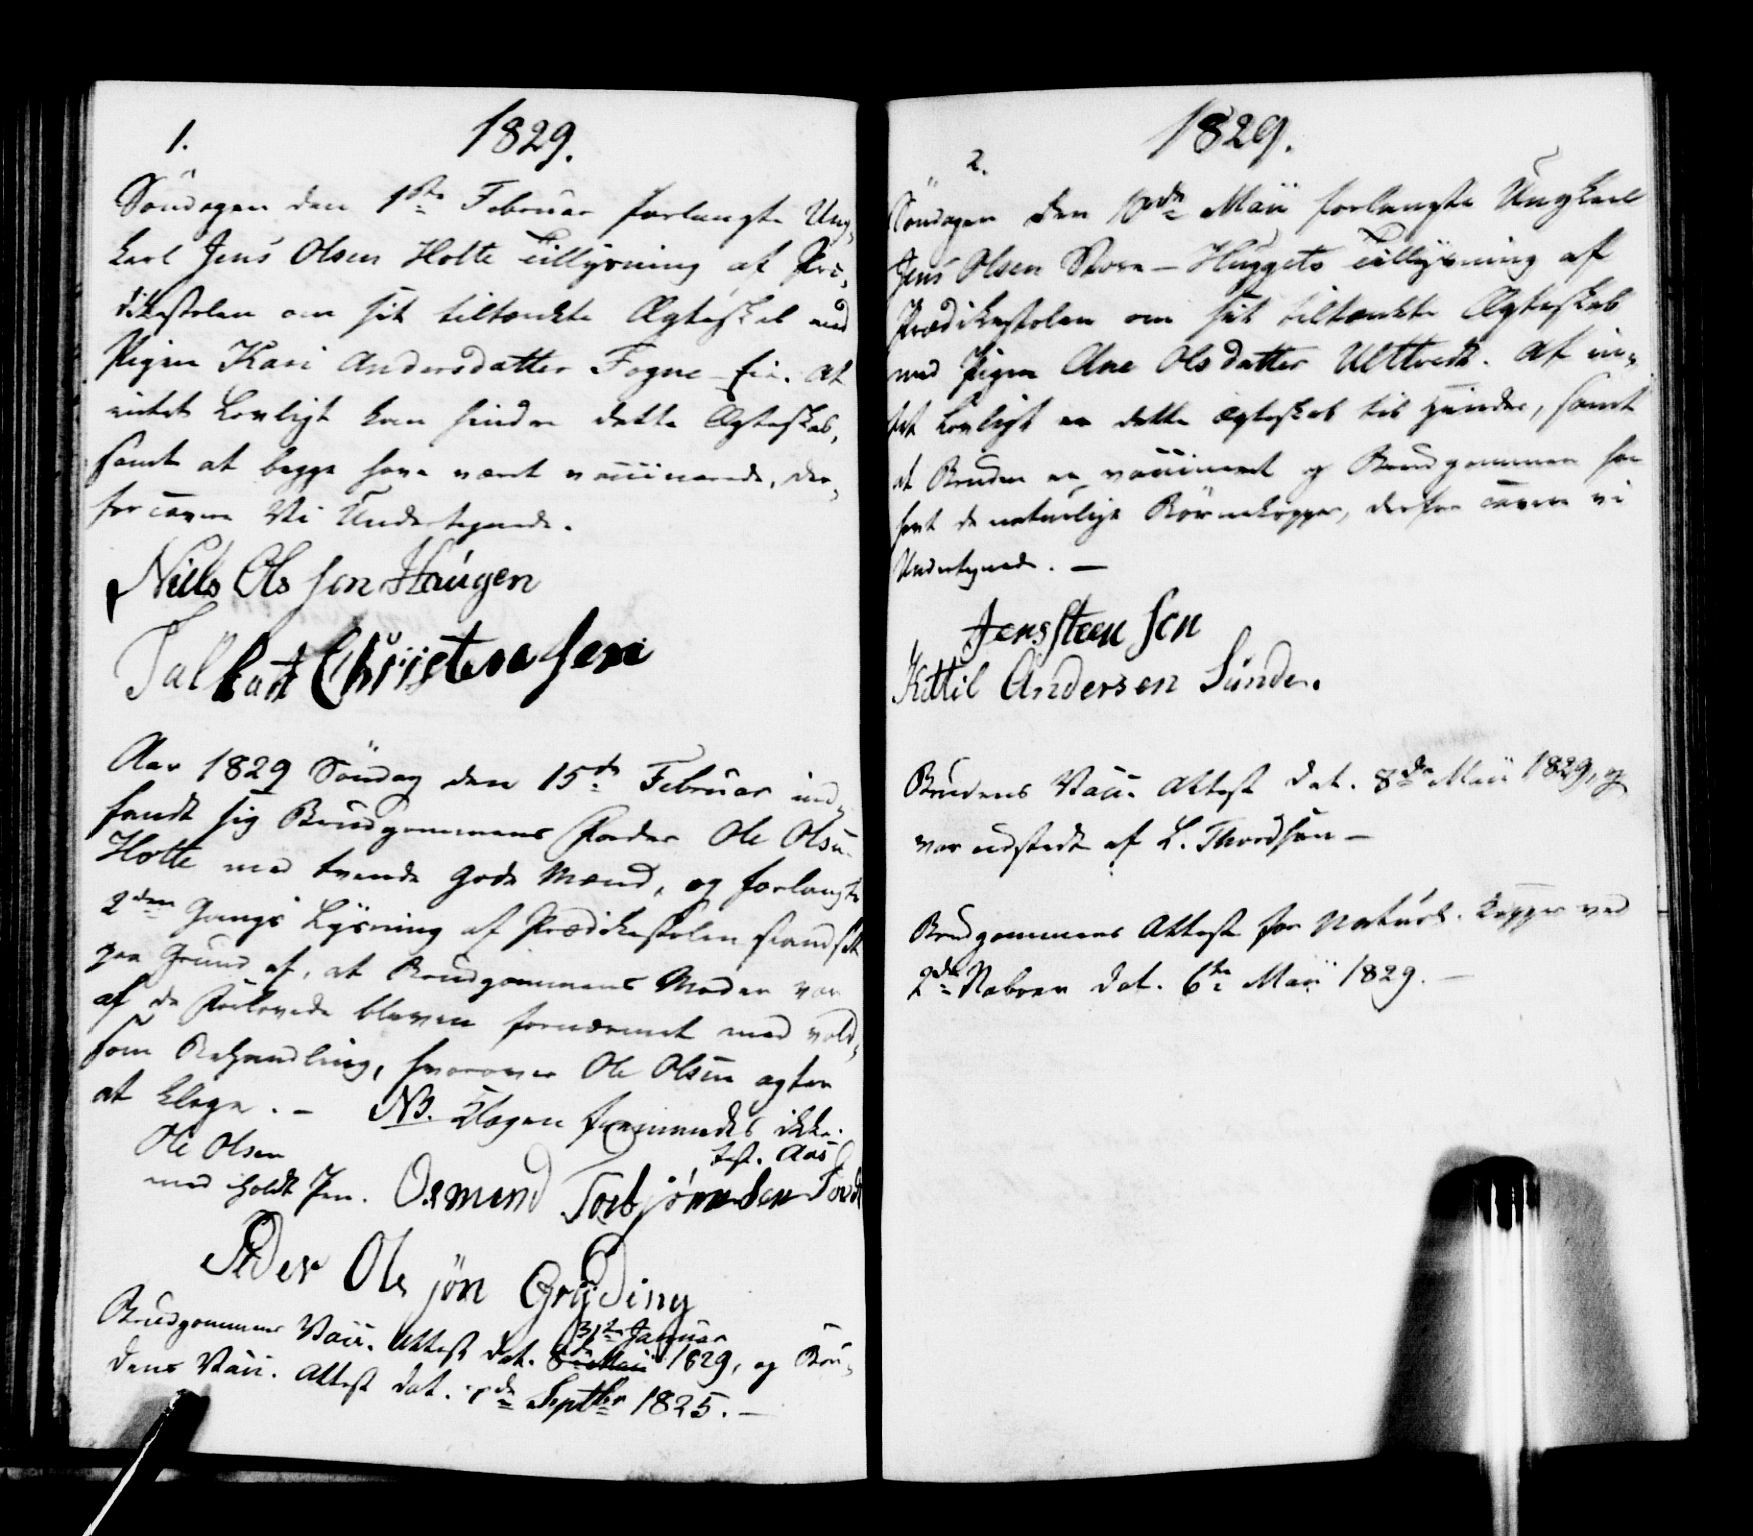 1. 1829.
Söndagen den 1ste Februar forlangte Ung-
karl Jens Olsen Holte Tillysning af Præ-
dikestolen om sit tiltænkte Ægteskab med
Pigen Kari Andersdatter Fogne-Eie. At
intet Lovligt kan hindre dette Ægteskab,
samt at begge have været vaccinerede, der-
for cavere Vi Undertegnede.
Niels Ols sen Haugen
Talkart Christensen
Aar 1829 Söndag den 15de Februar ind-
fandt sig Brudgommens Fader Ole Olsen
Holte med tvende gode Mænd, og forlangte
2den Gangs Lysning af Prædikestolen standset
paa Grund af, at Brudgommens Moder var
af de Forlovede bleven fornærmet med vold-
som Behandling, hvorover Ole Olsen agter
at klage. – NB. Klagen fremmedes ikke.
test. Aas
Ole Olsen
med holdt Pen. Osmund Torbjörnsen
Peder Ols sön Gryding
31te Januar
Brudgommens Vacc. Attest dat. 1829, og Bru-
dens Vacc. Attest dat. Septbr 1825. –
1829.
2.
Söndagen den 10de Maii forlangte Ungkarl
Jens Olsen Store-Huggets Tillysning af
Prædikestolen om sit tiltænkte Ægteskab
med Pigen Ane Olsdatter Ulltvedt. At in-
tet Lovligt er dette Ægteskab til Hinder, samt
at Bruden er vaccineret og Brudgommen har
havt de naturlige Börnekopper, derfor cavere vi
Undertegnede. –
Jens Steen sen
Kittil Andersen Sunde.
Brudens Vacc. Attest dat. 8de Maii 1829, og
var udstedt af L. Thordsen –
Brudgommens Attest for Naturl. Kopper ved
2de Naboer dat. 6te Maii 1829. –